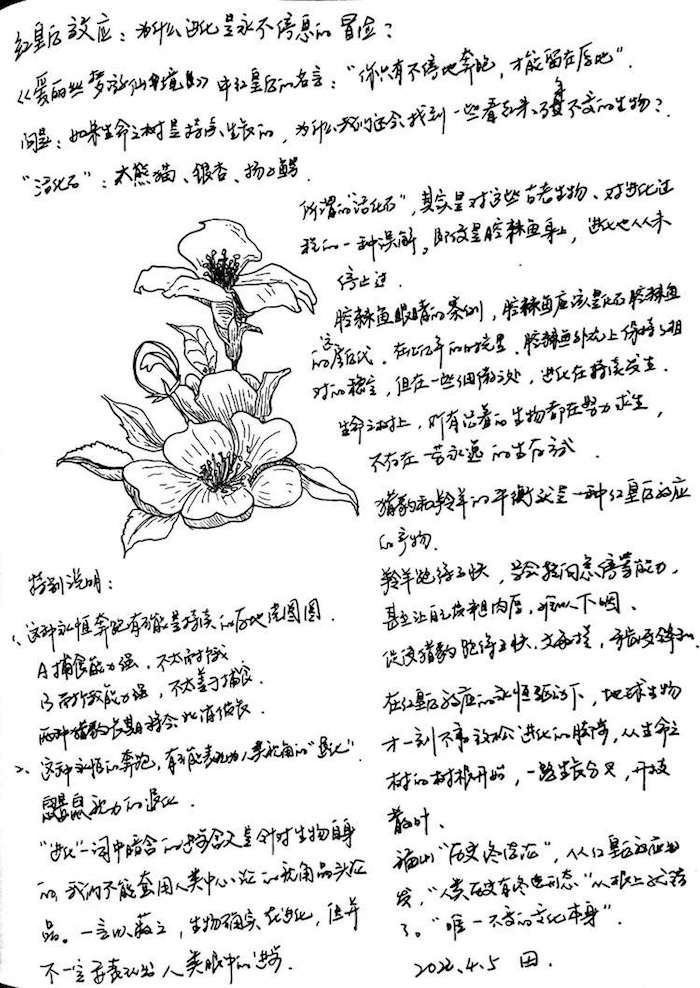 红皇后效应：为什么进化是永不停息的冒险？
《爱丽丝梦游仙境》中红皇后的名言：“你只有不停地奔跑，才能留在原地”.
问题：如果生命之树是持续生长的，为什么我们还会找到一些看起来亘古不变的生物？
“活化石”：大熊猫、银杏、扬子鳄.
所谓的“活化石”，其实是对这些古老生物、对进化过
程的一种误解。即使是腔棘鱼身上，进化也从未
停止过.
腔棘鱼眼睛的案例，腔棘鱼应该是化石腔棘鱼
的后代. 在这亿年的时光里. 腔棘鱼外形上保持了相
对的稳定，但在一些细微之处，进化在持续发生.
生命之树上，所有活着的生物都在努力求生，
不存在一劳永逸的生存方式.
猎豹和羚羊的平衡就是一种红皇后效应
的产物.
羚羊跑得更快，学会拐向急停等能力.
甚至让自己皮粗肉厚，难以下咽、
促使猎豹跑得更快、更敏捷，牙齿更锋利.
在红皇后效应的永恒驱动下，地球生物
才一刻不敢放松进化的脚步，从生命之
树的树根开始，一路生长分叉，开枝
散叶、
福山“历史终结论”，从红皇后效应出
发，“人类历史有终极形态”从根上就错
了。“唯一不变的变化本身”.
2022.4.5 田.
特别说明：
1、这种永恒奔跑有可能是持续的原地兜圈圈.
A捕食能力强，不太耐饿
B耐饿能力强，不太善于捕食.
两种猎豹长期将会此消彼长.
2、这种永恒的奔跑，有可能表现为人类视角的“退化”.
鼹鼠视力的退化.
“进化”一词中暗含的进步含义是针对生物自身
的，我们不能套用人类中心论的视角品头论
品。一言以蔽之，生物确实在进化，但并
不一定要表现出人类眼中的进步.